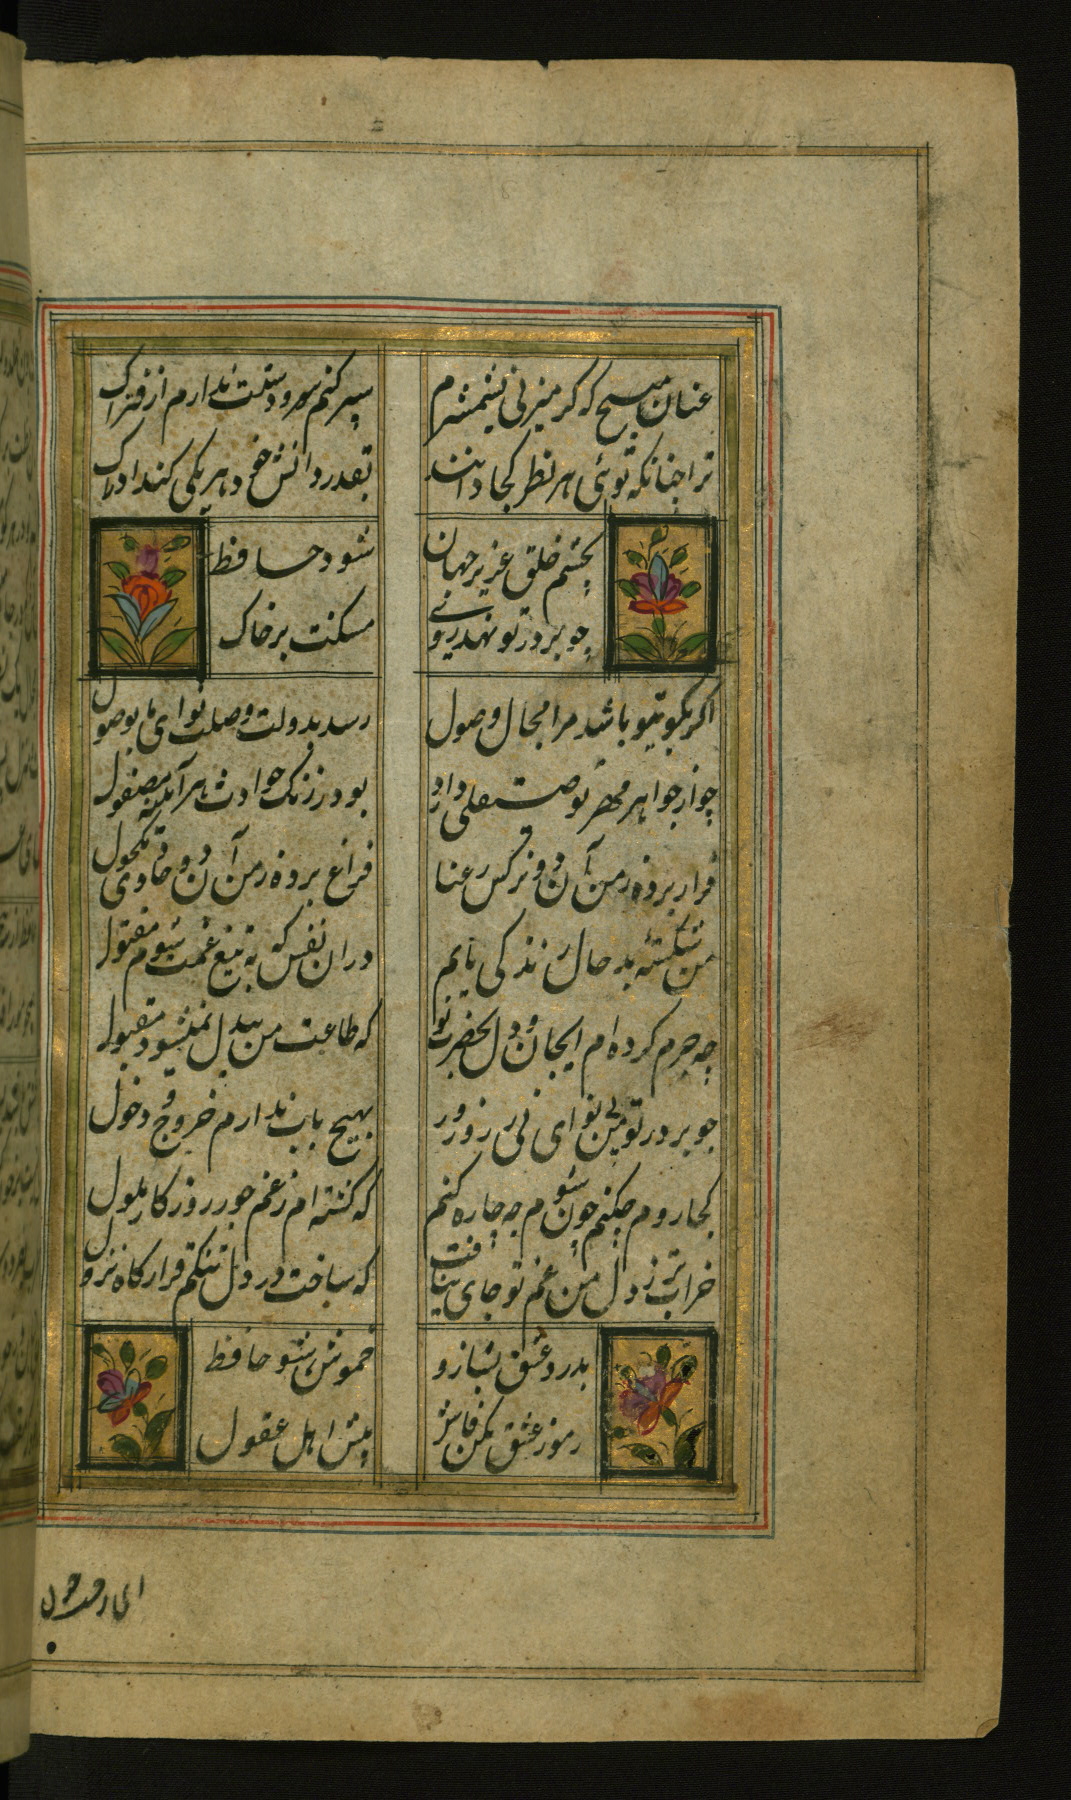 عنان مپیچ که گر میزنی بشمشیرم
سپر کنم سر و دستت ندارم از فتراک
ترا چنانکه توئی هر نظر کجا داند
بقدر دانش خود هر یکی کند ادراک
بچشم خلق عزیز جهان
شود حافظ
چو بر در تو نهد روی
مسکنت بر خاک
اگر بکوی تو باشد مرا مجال وصول
رسد بدولت وصلت نوای ما بوصول
چو از جواهر مهر تو صیقلی دارد
بود ز زنک حوادث هر آینه مصقول
قرار برده ز من آن دو نرکس رعنا
فراغ برده ز من آن دو جادوی مکحول
من شکسته بد حال زندکی یابم
در ان نفس که بتیغ غمت شوم مقتول
چه جرم کرده ام ای جان و دل بحضرت تو
که طاعت من بیدل نمیشود مقبول
چو بر در تو من بی نوای بی زر و زور
بهیچ باب ندارم خروج و دخول
کجا روم چکنم چون شوم چه چاره کنم
که کشته ام ز غم جور روزکار ملول
خراب تر ز دل من غم تو جای نیافت
که ساخت در دل تنکم قرارکاه نزول
بدرد عشق بساز و
خموش شو حافظ
رموز عشق مکن فاش
پیش اهل عقول
ای رخت چون